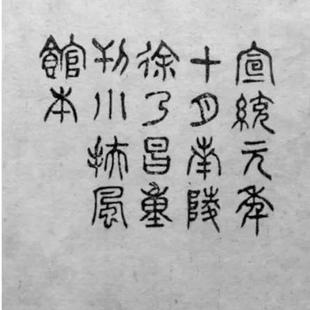 宣統元年
十月南陵
徐乃昌重
刊小風
館本